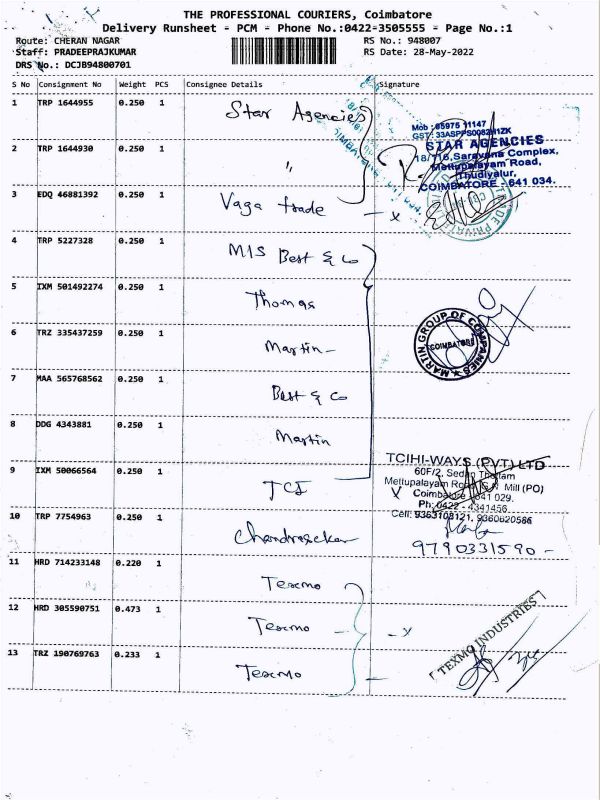 THE PROFESSIONAL COURIERS, Coimbatore
Delivery Runsheet - PCM - Phone No.:0422-3505555 - Page No.:1
Route: CHERAN NAGAR RS No.: 948007
Staff: PRADEEPRAJKUMAR RS Date: 28-May-2022
DRS No.: DCJB94800701
S No Consignment No Weight PCS Consignee Details Signature
1 TRP 1644955 0.250 1 Star Agencies
2 TRP 1644930 0.250 1 "
Mob : 95975 11147
STAR AGENCIES
18/116, Saravana Complex,
Mettupalayam Road,
Thudiyalur,
COIMBATORE - 641 034.
3 EDQ 46881392 0.250 1 Vaga trade - x
4 TRP 5227328 0.250 1 M/S Best & Co
5 IXM 501492274 0.250 1 Thomas
6 TRZ 335437259 0.250 1 Martin -
MARTIN GROUP OF COMPANIES
COIMBATORE
7 MAA 565768562 0.250 1 Best & Co
8 DDG 4343881 0.250 1 Martin
9 IXM 50066564 0.250 1 TCI
TCIHI-WAYS (PVT) LTD
60F/2, Sedan Thottam
Mettupalayam Road, G.N. Mill (PO)
X Coimbatore - 641 029.
Ph: 0422 - 4341456
Cell: 9363103121, 9360620566
10 TRP 7754963 0.250 1 Chandrasekar
9790331590 -
11 HRD 714233148 0.220 1 Texmo
12 HRD 305590751 0.473 1 Texmo - - x
13 TRZ 190769763 0.233 1 Texmo -
TEXMO INDUSTRIES